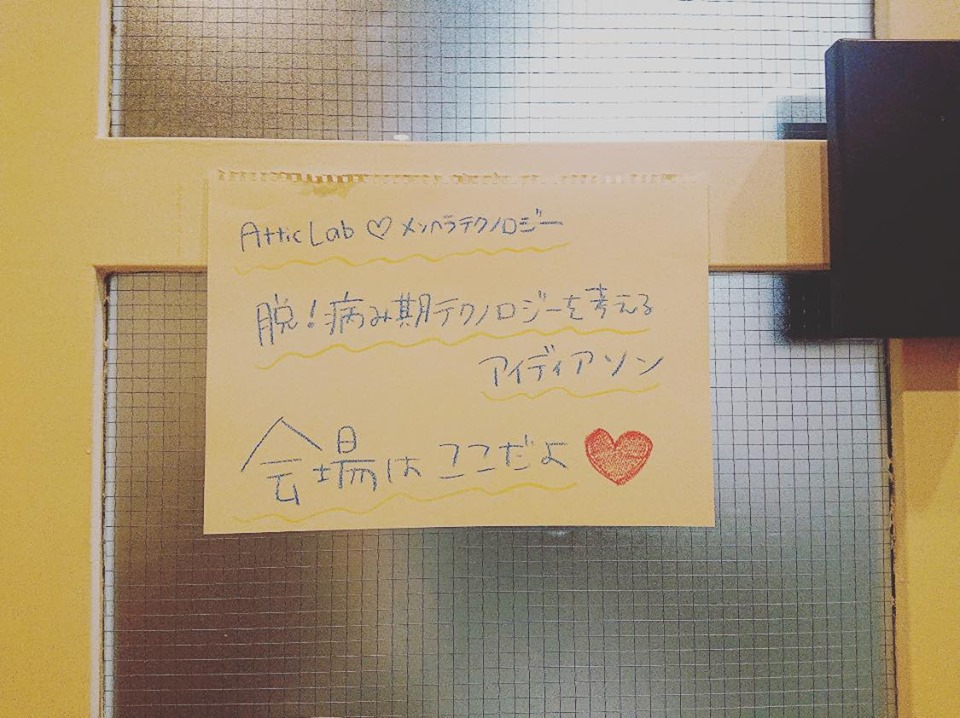 Attic Lab ♡ メンヘラテクノロジー
脱！病み期テクノロジーを考える
アイディアソン
会場はここだよ